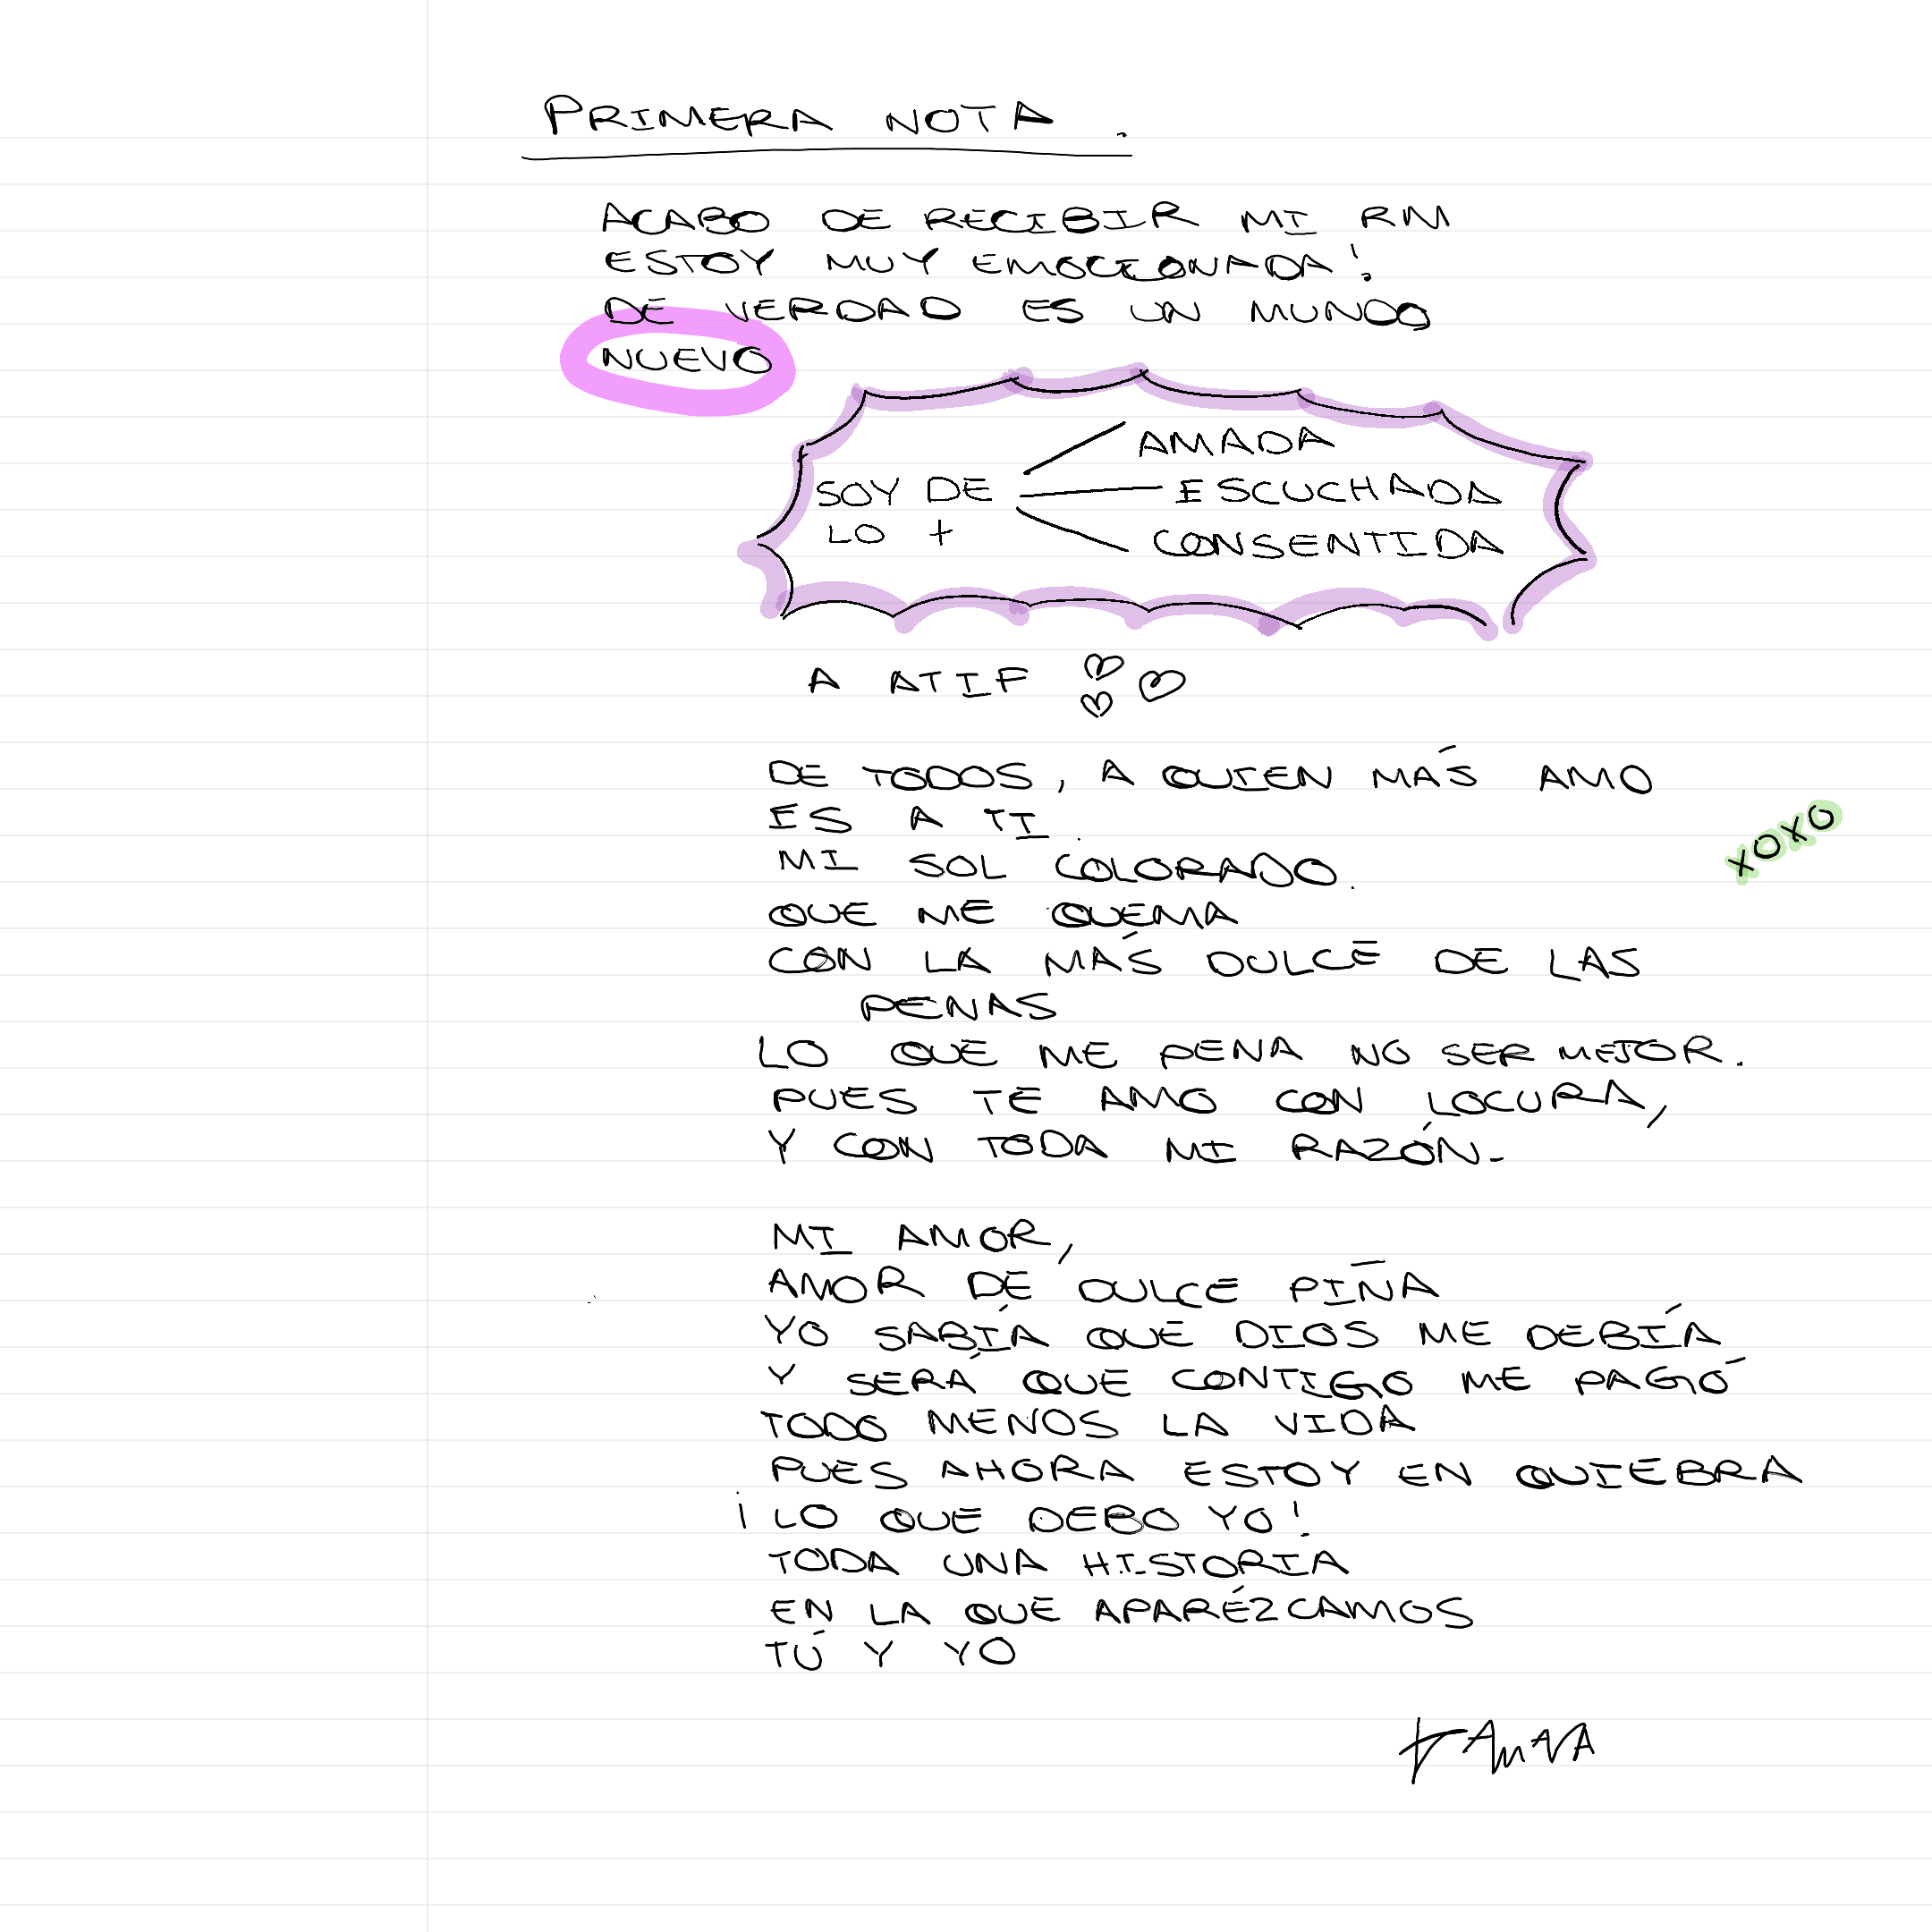 PRIMERA NOTA.
ACABO DE RECIBIR MI RM
ESTOY MUY EMOCIONADA!
DE VERDAD ES UN MUNDO
NUEVO
SOY DE
LO +
AMADA
ESCUCHADA
CONSENTIDA
A ATIF
DE TODOS, A QUIEN MÁS AMO
ES A TI.
MI SOL COLORADO.
QUE ME QUEMA
CON LA MÁS DULCE DE LAS
PENAS
LO QUE ME PENA NO SER MEJOR.
PUES TE AMO CON LOCURA,
Y CON TODA MI RAZÓN.
XOXO
MI AMOR,
AMOR DE DULCE PIÑA
YO SABÍA QUE DIOS ME DEBÍA
Y SERÁ QUE CONTIGO ME PAGÓ
TODO MENOS LA VIDA
PUES AHORA ESTOY EN QUIEBRA
¡LO QUE DEBO YO!
TODA UNA HISTORIA
EN LA QUE APARÉZCAMOS
TÚ Y YO